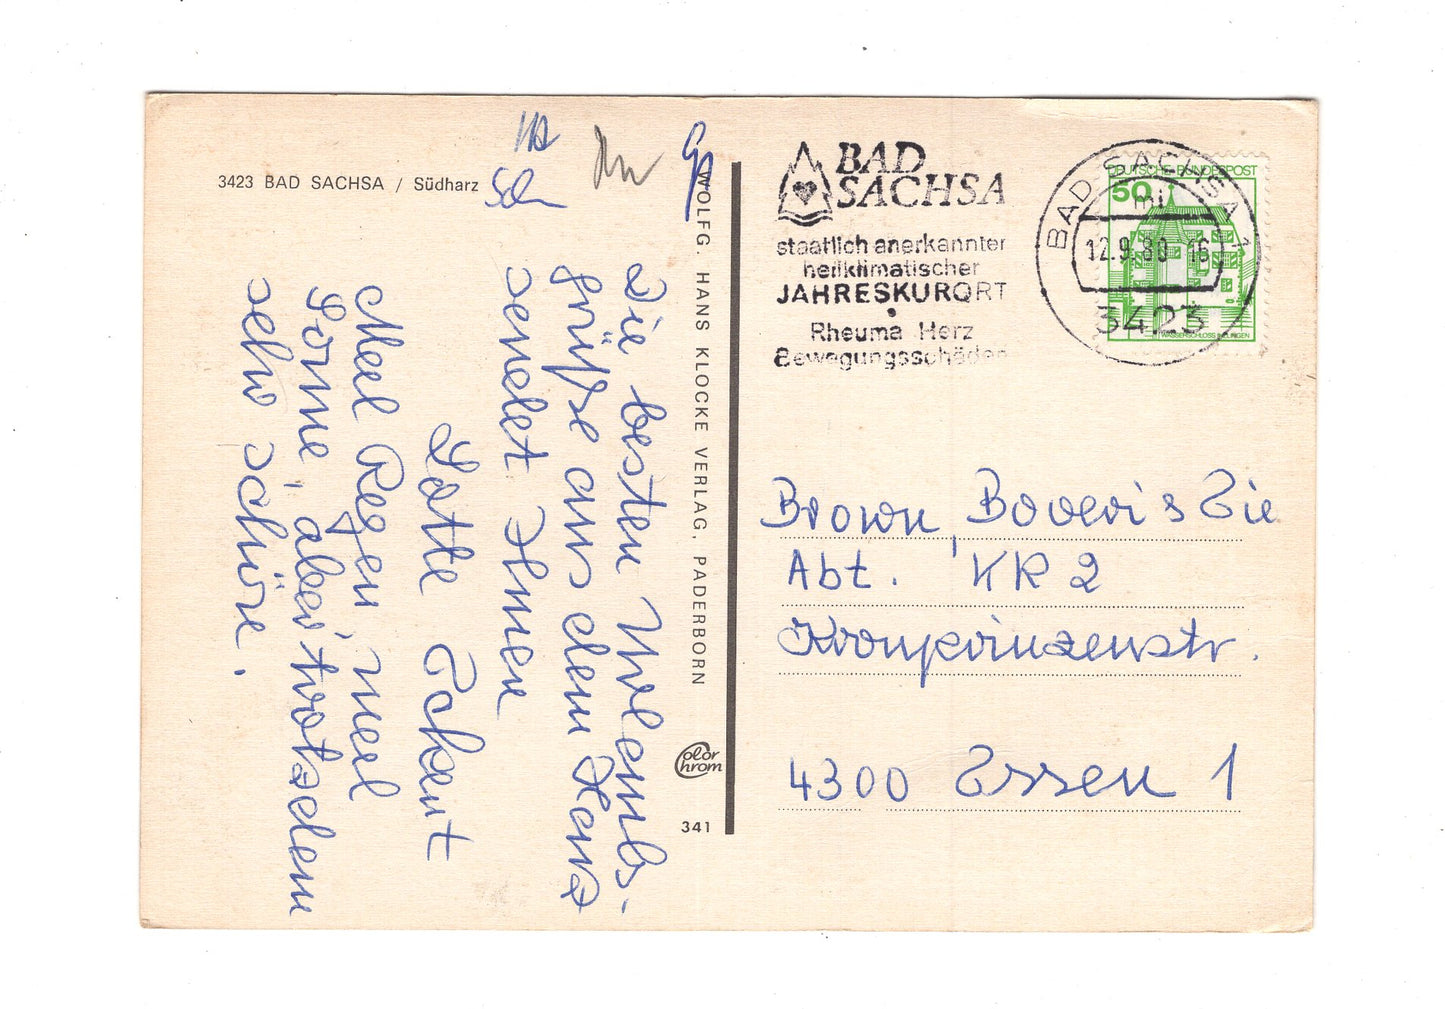 3423 BAD SACHSA / Südharz
Die besten Urlaubs-
grüße aus dem Harz
sendet Ihnen
Lotte Eckert
Viel Regen, viel
Sonne, aber trotzdem
sehr schön.
WOLFG. HANS KLOCKE VERLAG, PADERBORN
Color
Chrom
341
BAD
SACHSA
staatlich anerkannter
heilklimatischer
JAHRESKURORT
Rheuma Herz
Bewegungsschäden
BAD SACHSA 1
mi
12.9.80 - 16
3423
DEUTSCHE BUNDESPOST
50
WASSERSCHLOSS INZLINGEN
Brown, Boveri & Cie
Abt. KR 2
Kronprinzenstr.
4300 Essen 1